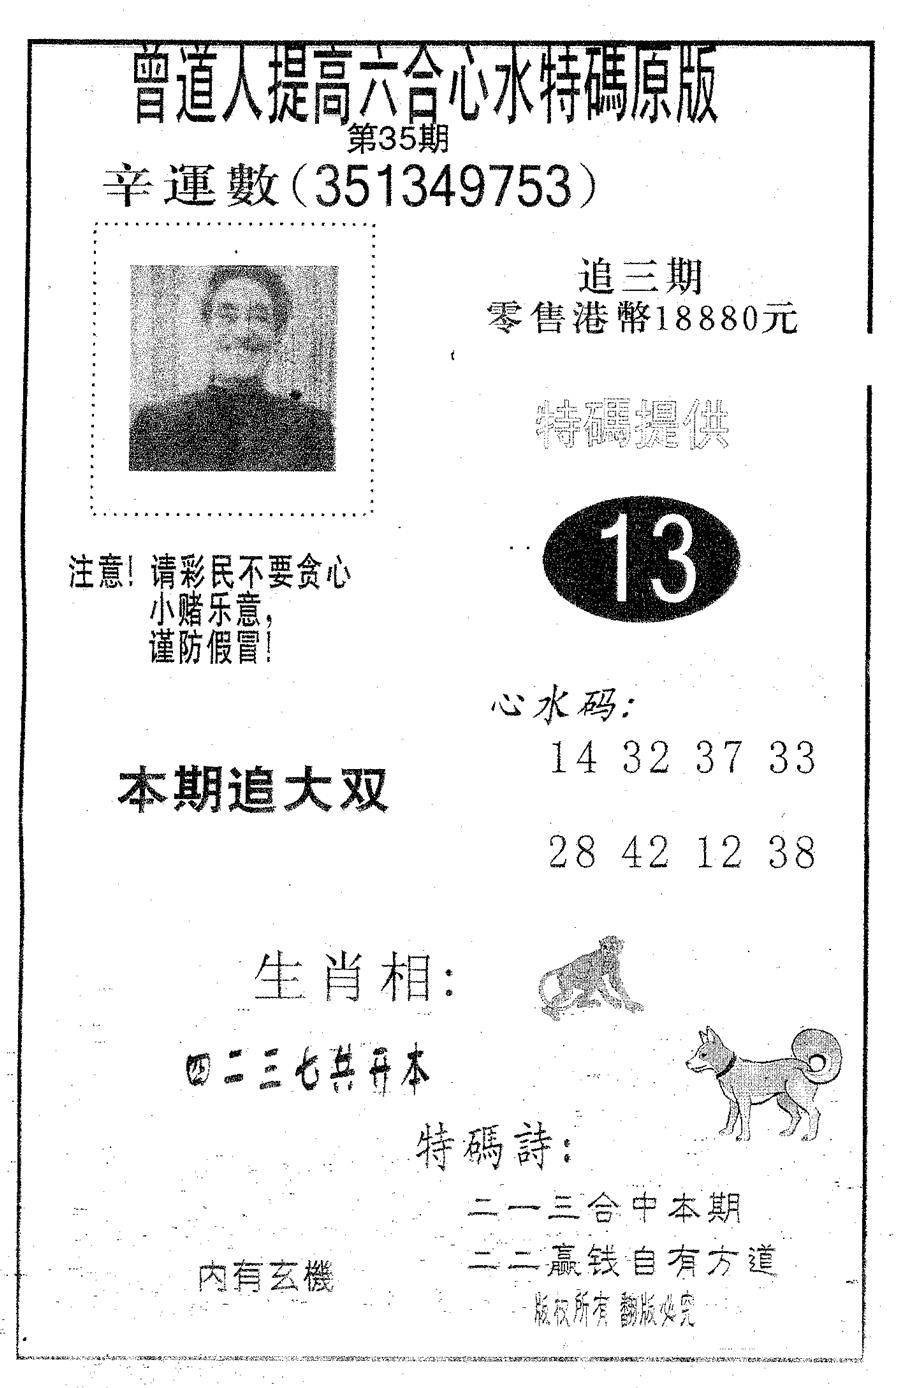 曾道人提高六合心水特碼原版
第35期
辛運數(351349753)
追三期
零售港幣18880元
特碼提供
13
注意! 请彩民不要贪心
小赌乐意,
谨防假冒!
心水码:
14 32 37 33
本期追大双
28 42 12 38
生肖相:
四二三七共开本
特碼詩:
二一三合中本期
二二赢钱自有方道
内有玄機
版权所有 翻版必究